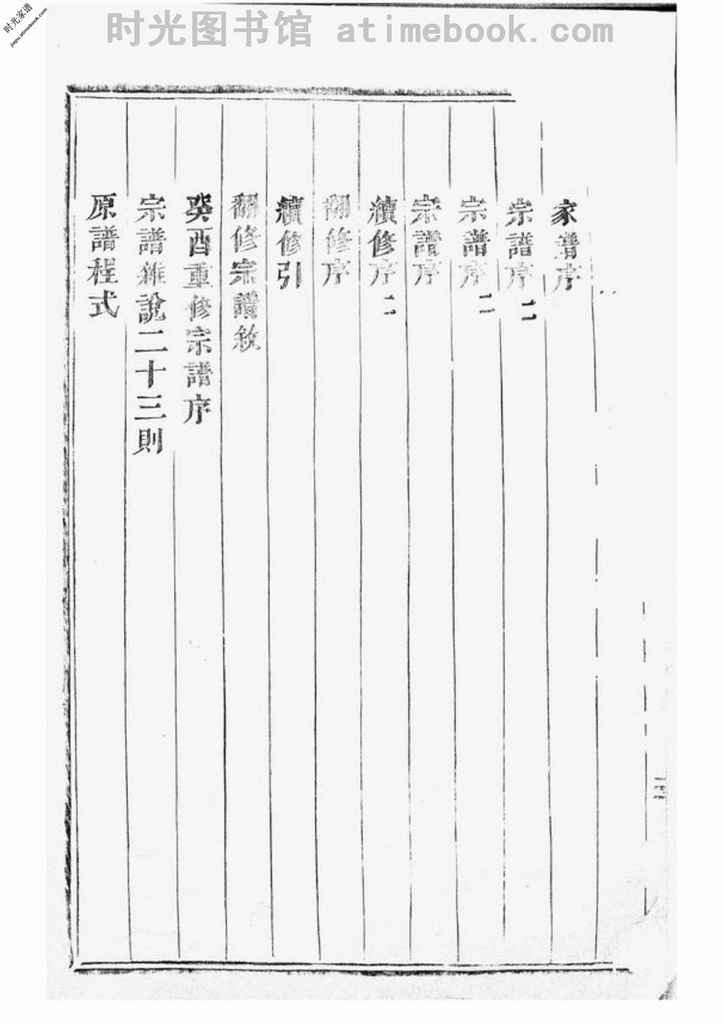 时光图书馆 atimebook.com
时光家谱
jiapu.atimebook.com
家譜序
宗譜序二
宗譜序二
宗譜序
續修序二
翻修序
續修引
翻修宗譜敘
癸酉重修宗譜序
宗譜雜說二十三則
原譜程式